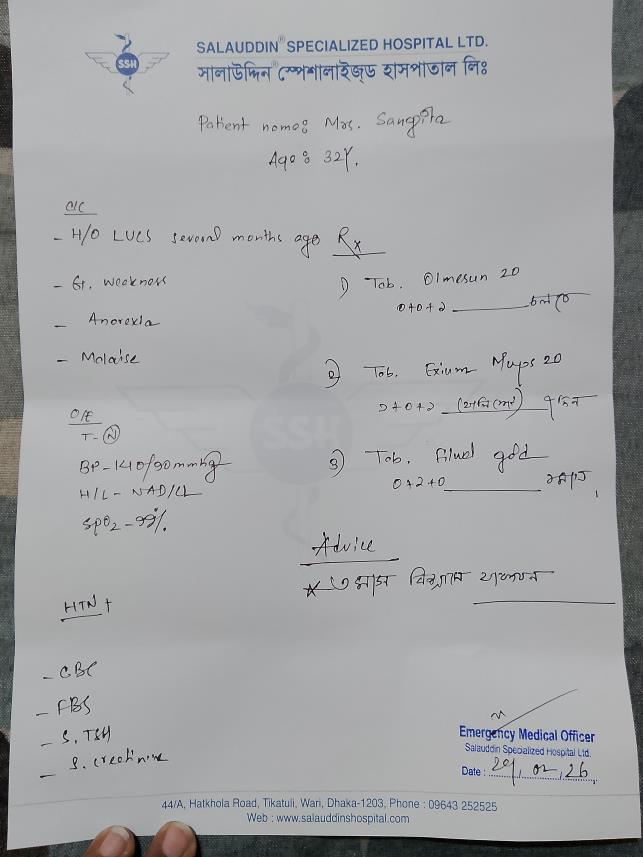 SALAUDDIN® SPECIALIZED HOSPITAL LTD.
সালাউদ্দিন® স্পেশালাইজ্‌ড হাসপাতাল লিঃ
SSH
Patient name: Mrs. Sangita
Age: 32 Y.
C/C
- H/O LUCS several months ago
- G. weakness
- Anorexia
- Malaise
O/E
T- N
BP- 140/90 mmHg
H/L - NAD/CL
SPO2 - 99%
HTN +
- CBC
- FBS
- S. TSH
- S. creatinine
Rx
1) Tab. Olmesun 20
0+0+১ চলবে
2) Tab. Exium Mups 20
১+0+১ ৭ দিন
3) Tab. gold
0+১+0
SSH
Advice
* ৩ মাস বিশ্রামে থাকবেন
Emergency Medical Officer
Salauddin Specialized Hospital Ltd.
Date : 02, 26
44/A, Hatkhola Road, Tikatuli, Wari, Dhaka-1203, Phone : 09643 252525
Web : www.salauddinshospital.com